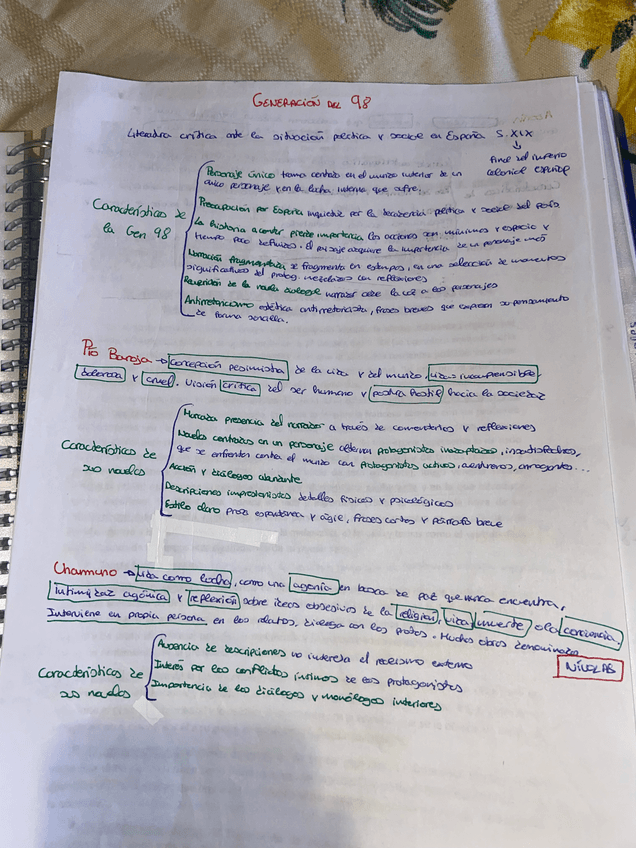 GENERACIÓN DEL 98
Literatura crítica ante la situación política y social en España S. XIX
↓
final del imperio
colonial español
Características de
la Gen 98
Personaje único trama centrada en el mundo interior de un
único personaje y en la lucha interna que sufre.
Preocupación por España inquietud por la decadencia política y social del país
La historia a contar pierde importancia las acciones son mínimas y espacio y
tiempo poco definidos. El paisaje adquiere la importancia de un personaje más
Narración fragmentaria se fragmenta en estampas, en una selección de momentos
significativos del protag. mezclados con reflexiones
de la novela dialogada narrador cede la voz a los personajes
Antirretoricismo estética antirretoricista, frases breves que expresan su pensamiento
de forma sencilla.
Pío Baroja → concepción pesimista de la vida y del mundo, vida incomprensible,
dolorosa y cruel. Visión crítica del ser humano y postura hostil hacia la sociedad
Características de
sus novelas
Marcada presencia del narrador a través de comentarios y reflexiones
Novelas centradas en un personaje protagonistas inadaptados, insatisfechos,
que se enfrentan contra el mundo con protagonistas activos, aventureros, arrogantes...
Acción y diálogos abundante
Descripciones impresionistas detalles físicos y psicológicos
Estilo claro prosa espontánea y ágil, frases cortas y párrafo breve
Unamuno → vida como lucha, como una agonía en busca de paz que nunca encuentra,
Intimidad agónica y reflexión sobre ideas obsesivas de la religión, vida, muerte o la conciencia
Interviene en propia persona en los relatos, dialoga con los protas. Muchas obras denominadas
NIVOLAS
Características de
sus novelas
Ausencia de descripciones no interesa el realismo externo
Interés por los conflictos íntimos de los protagonistas
Importancia de los diálogos y monólogos interiores